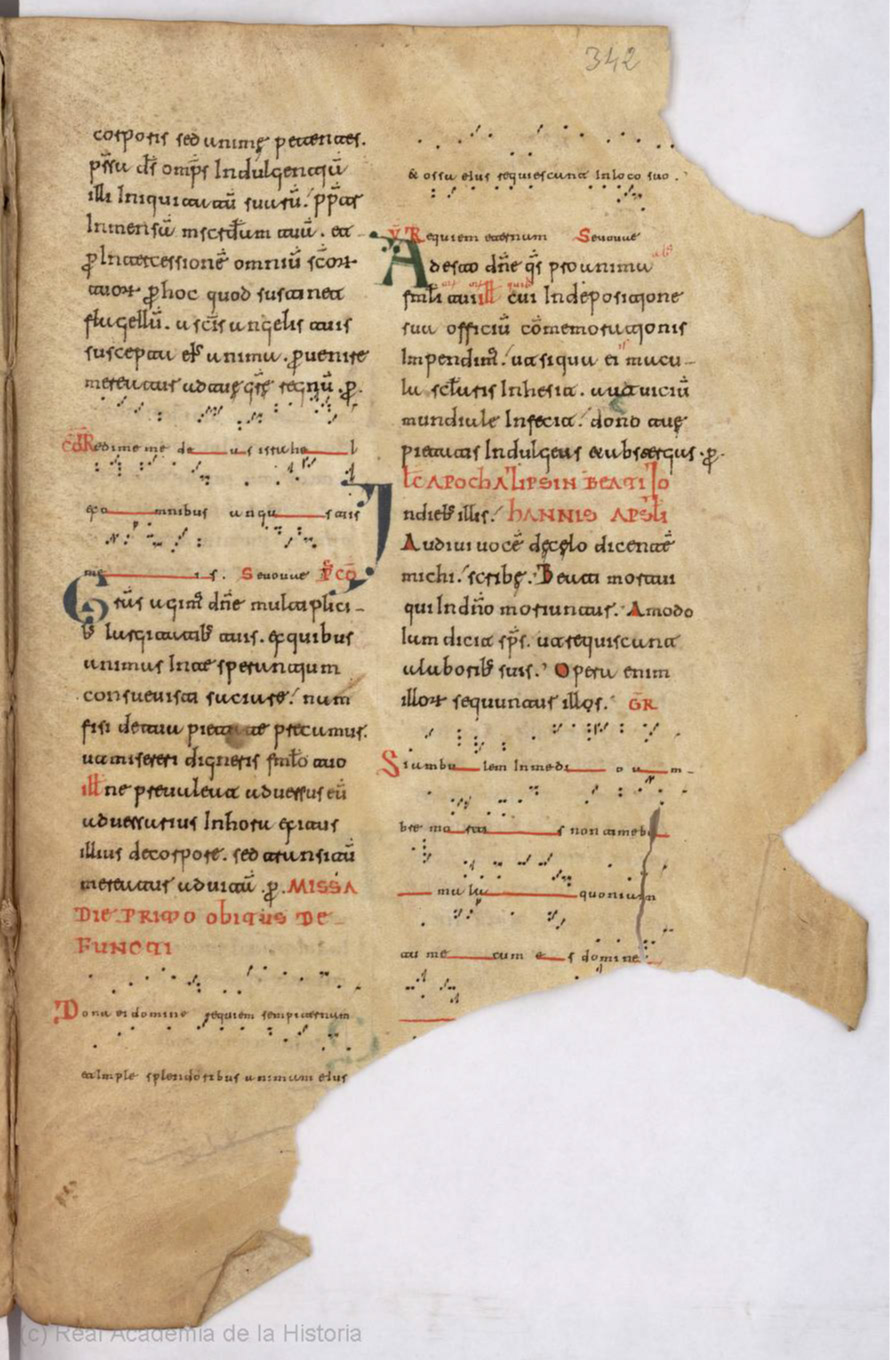 342
corporis sed animę petentes.
p̄sta ds̄ omp̄s Indulgentiaū
illi Iniquitatū suarū. p̄p̄t
Inmensā mscrd̄iam tuā. et
p̱ Intercessionē omniū sc̄or
tuor p̱ hoc quod sustinet
flagellū. a sc̄is angelis tuis
suscepta ei anima. p̱uenire
mereatur ad tuę glę regnū. p̱.
c̄o Redime me deus israhel
exo mnibus angustiis
me is. Seuouae p̄ cō
Grās agim̄ dn̄e multiplici
b̄ largitatib̄ tuis. ex quibus
animas In te sperantium
consueuisti saciare. nam
fisi de tua pietate precamus.
ut misereri digneris fml̄o tuo
ill̄ ne preualeat aduersus eū
aduersarius In hora exitus
illius de corpore. sed transitū
mereatur ad uitā. p̱. MISSA
DIE PRIMO obitus DE
FUNCTI
Dona ei domine requiem sempiternam
et Imple splendoribus animam eius
& ossa eius requiescant In loco suo.
v̄ Requiem eternam Seuouae
Adesto dn̄e qs̄ pro anima
fml̄i tui ill̄ cui In deposicione
sua officiū cōmemorationis
Impendim̄. ut si qua ei macu-
la Inhesit. aut uiciū
mundiale Infecit. dono tuę
pietatis Indulgeas et abstergas. p̱.
lc̄ APOchALIPSIN BEATI Io
hANNIS APSl̄I
In dieb̄ illis.
Audiui uocē de cęlo dicentē
michi. scribę. Beati mortui
qui In dn̄o moriuntur. Amodo
Iam dicit sp̄s. ut requiscant
a laborib̄ suis. Opera enim
illor sequuntur illos. GR̄
Si ambu lem In medi o u m-
bre mor tis non timebo
mala quoniam
tu me cum es domine
(c) Real Academia de la Historia